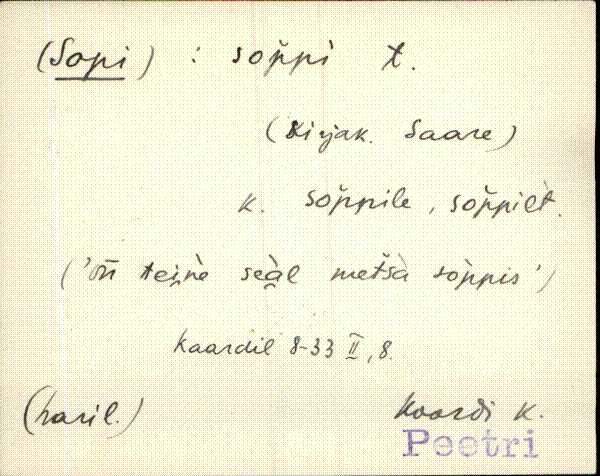 (Sopi) : sop̆pi t.
(Kirjak. Saare)
k. sop̆pile, sop̆pilt.
('on teine seal metsa sop̆pis')
Kaardil 8-33 II, 8.
(haril.) Koordi k.
Peetri